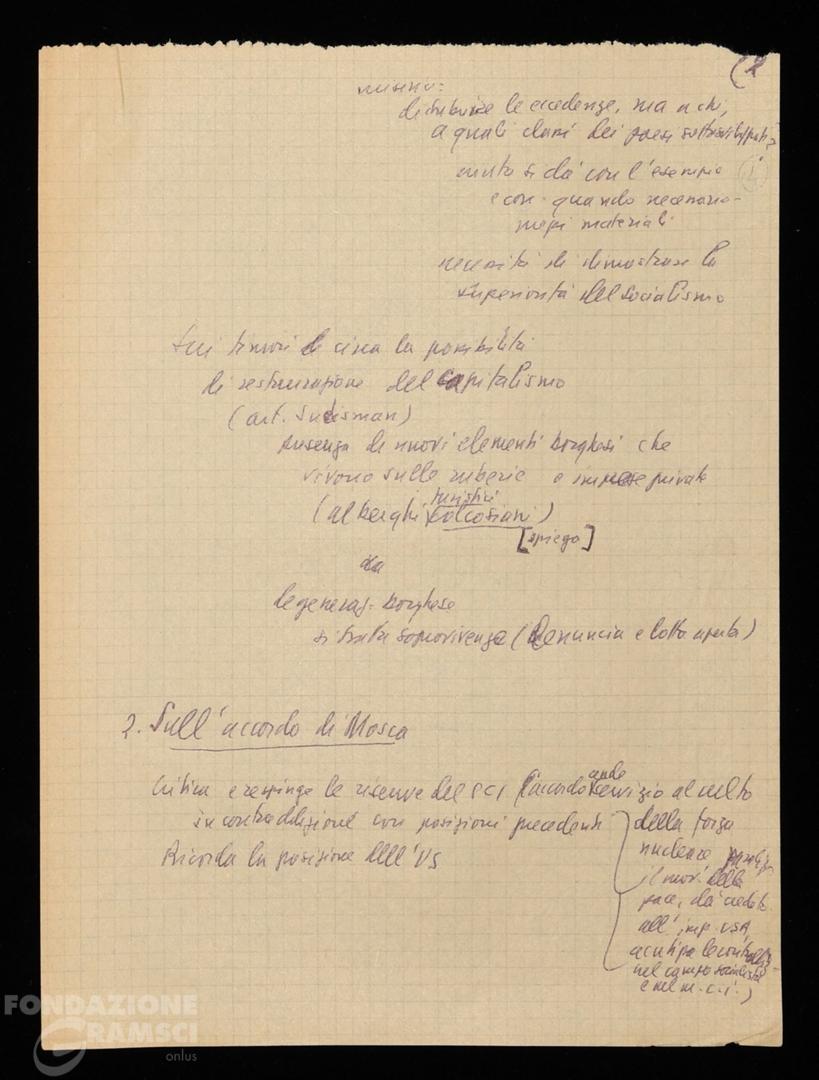 (2
distribuire le eccedenze, ma a chi,
a quali classi dei paesi sottosviluppati?
aiuto si dà con l'esempio
e con quando necessario
mezzi materiali
necessità di dimostrare la
superiorità del socialismo
Sui timori circa la possibilità
di restaurazione del capitalismo
(art. Sudisman)
assenza di nuovi elementi borghesi che
vivono sulle ruberie e imprese private
turistici
(alberghi colcosiani)
[spiega]
da
degeneraz. borghese
si tratta sopravvivenze (Denuncia e lotta aperta)
2. Sull'accordo di Mosca
Critica e respinge le riserve del PCI (l'accordo rende servizio al
in contraddizione con posizioni precedenti
della forza
nucleare
Ricorda la posizione dell'US
il mov. della
pace, dà credito
all'imp. USA,
acutizza le
nel campo socialista
e nel m.c.i.)
FONDAZIONE
GRAMSCI
onlus